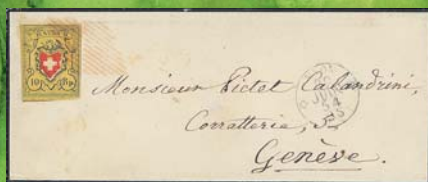 10 Rp.
Monsieur Pictet Calandrini,
Corratterie,
Genève.